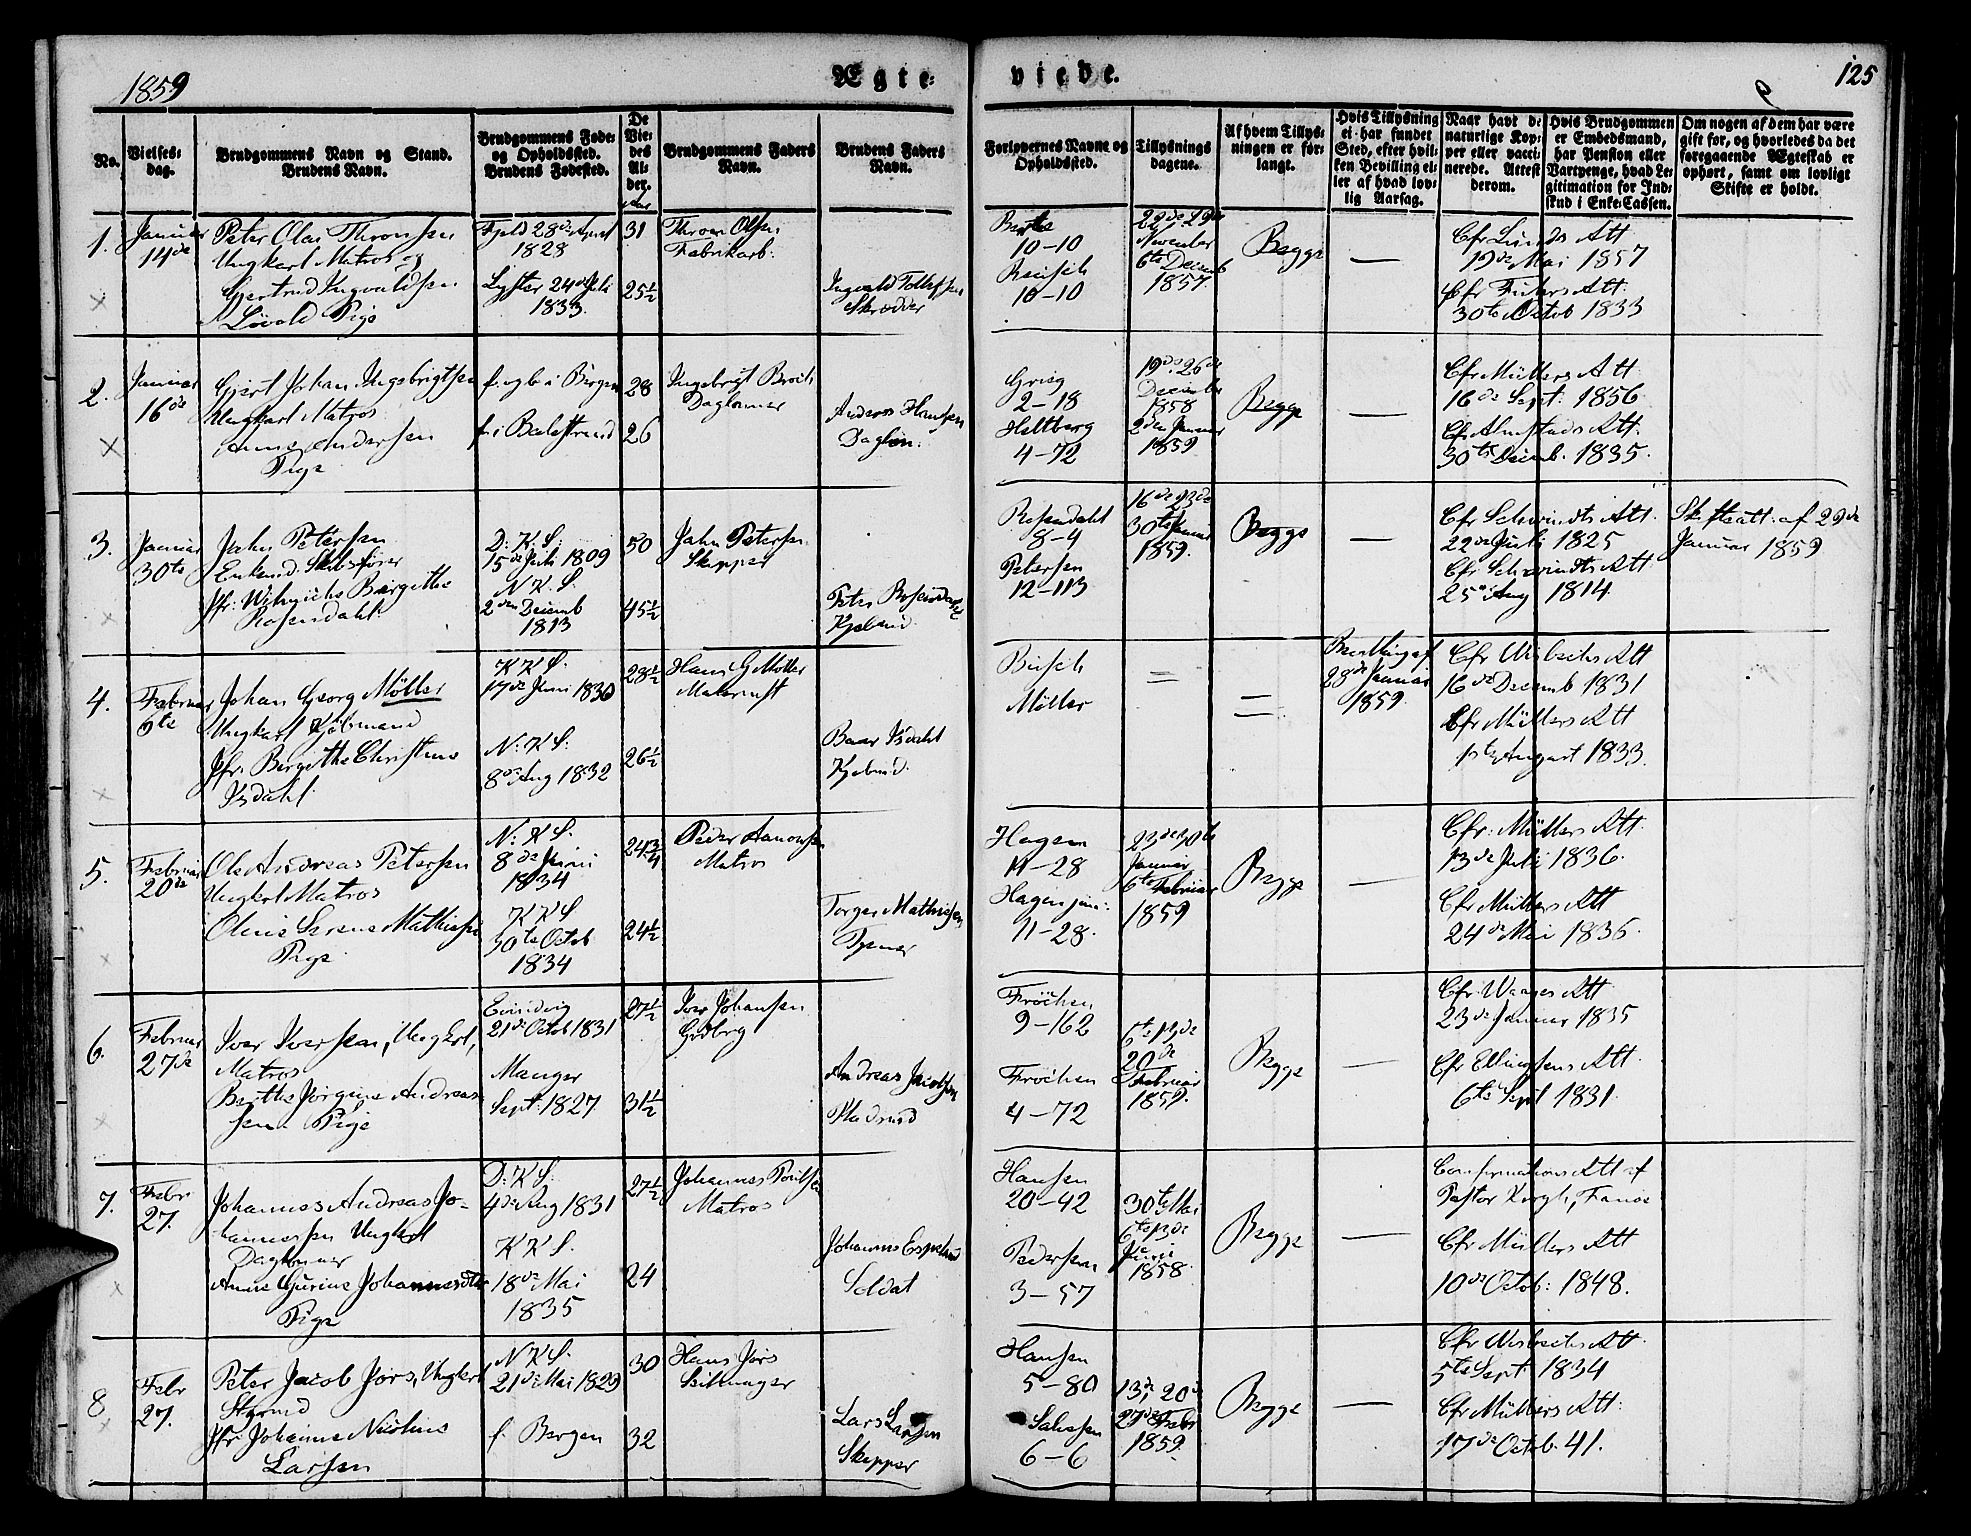 1859
Ægte-
viede.
125
No.
Vielses-
dag.
Brudgommens Navn og Stand.
Brudens Navn.
Brudgommens Føde-
og Opholdssted.
Brudens Fødested.
De
Vie-
des
Al-
der.
Brudgommens Faders
Navn.
Brudens Faders
Navn.
Forlovernes Navne og
Opholdssted.
Tillysnings
dagene.
Af hvem Tillys-
ningen er for-
langt.
Hvis Tillysning
ei har fundet
Sted, efter hvil-
ken Bevilling el-
ler af hvad lov-
lig Aarsag.
Naar havt de
naturlige Kop-
per eller vacci-
nerede. Attest
derom.
Hvis Brudgommen
er Embedsmand,
har Pension eller
Vartpenge, hvad Le-
gitimation for Ind-
skud i Enke-Cassen.
Om nogen af dem har være
gift før, og hvorledes da det
foregaaende Ægteskab er
ophørt, samt om lovligt
Skifte er holdt.
1.
Januar
14de
Peter Olai Thronsen
Ungkarl Matros og
Gjertrud Ingvaldsen
Løvold Pige
Fjeld 28de
1828
Lyster 24de Juli
1833.
31
25½
Thron Olsen
Fabrikarb.
Ingvald Tollefsen
Skrædder
10-10
Reusch
10-10
22de 29de
November
6te Decemb
1857.
Begge
—
Cfr Lunds Att
19de Mai 1857
Cfr Att:
30te Octob 1833
2.
Januar
16de
Gjert Johan Ingebrigtsen
Ungkarl Matros
Anne Andersen
Pige
f. og b. i Bergen
f. i Balestrand
28
26
Ingebrigt Broch
Daglønner
Anders Hansen
Dagløn.
Grieg
2-18
Heltberg
4-72
19de 26de
December
1858
2den Januar
1859
Begge
—
Cfr Müllers Att:
16de Sept: 1856
Cfr Att:
30te Decemb. 1835.
3.
Januar
30te
Jahn Petersen
Enkemd. Skibsfører
Jfr: Birgithe
Rosendahl
D: K. S:
15de Juli 1809
N. K. S.
2den Decemb
1813
50
45½
Jahn Petersen
Skipper
Peter Rosendahl
Kjøbmd.
Rosendahl
8-4
Petersen
12-113
16de 23de
30te Januar
1859.
Begge
—
Cfr Schwindts Att.
22de Juli 1825
Cfr Schwindts Att.
25de Aug 1814
Skifteatt: af 29de
Januar 1859.
4.
Februar
6te
Johan Georg Møller
Ungkarl Kjøbmand
Jfr. Birgithe Christine
Isdahl
K K S:
17de Juni 1830
N: K S:
8de Aug 1832
28½
26½
Hans G Møller
Isdahl
Kjøbmd.
Busch
Müller
=
=
Bevilling af
28de Januar
1859
Cfr Wisbechs Att
16de Decemb 1831
Cfr Müllers Att
1ste August 1833
5.
Februar
20de
Ole Andreas Petersen
Ungkrl Matros
Oline Serene Mathiesen
Pige
N: K S.
8de Juni
1834
K K S
30te Octob
1834
24¾
24½
Peder Aanonsen
Matros
Torger Mathiesen
Hagen
11-28
Hagen jun:
11-28.
23de 30te
Januar
6te Februar
1859
Begge
—
Cfr: Müllers Att:
13de Juli 1836.
Cfr Müllers Att
24de Mai 1836.
6.
Februar
27de
Iver Iversen, Ungkrl,
Matros
Berthe Jørgine Andrea-
sen. Pige
Evindvig
21de Octob 1831
Manger
Sept: 1827
27½
31½
Iver Johansen
Gndbrg
Andreas Jacobsen
Pladsmd
Fröchen
9-162
Fröchen
4-72
6te 13de
20de
Februar
1859.
Begge
—
Cfr Waages Att
23de Januar 1835
Cfr Ellingsens Att
6te Sept 1831.
7.
Febr
27.
Johannes Andreas Jo-
hannessen Ungkrl
Daglønner
Anne Gurine Johannesdtr
Pige
D: K S.
4de Aug 1831
K K S.
18de Mai
1835
27½
24
Johannes
Matros
Johannes Espeland
Soldat
Hansen
20-42
Pedersen
3-57
30te Mai
6te 13de
Juni
1858
Begge
—
Confirmations Att af
Pastor Krogh, Fanøe
Cfr Müllers Att
10de Octob: 1848.
8
Febr
27.
Peter Jacob Jørs, Ungkrl
Styrmd
Jfr Johanne Nicoline
Larsen
N K S.
21de Mai 1829
f. Bergen
30
32
Hans Jørs
Lars Larsen
Skipper
Hansen
5-80
Salvesen
6-6
13de 20de
27de Febr
1859.
Begge
—
Cfr Wisbechs Att
5te Sept 1834
Cfr Müllers Att:
17de Octob. 41.